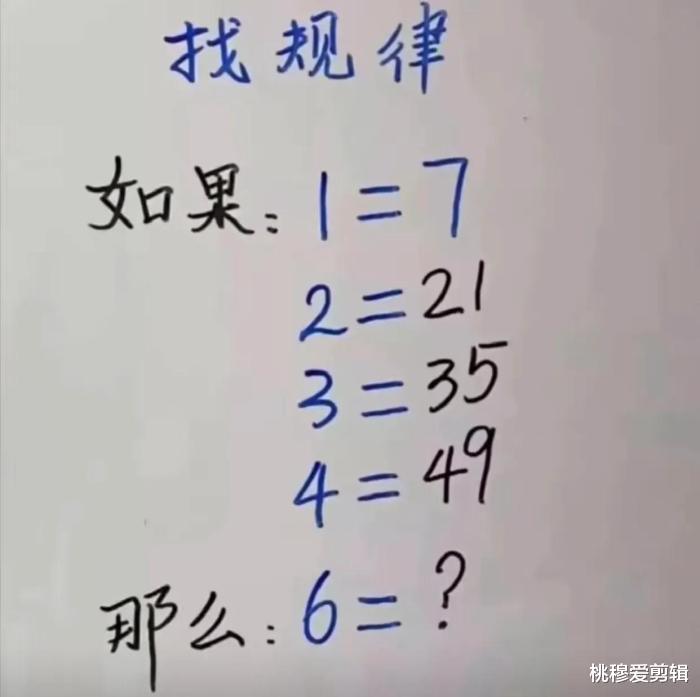 找规律
如果：1=7
2=21
3=35
4=49
那么：6=?
桃穆爱剪辑